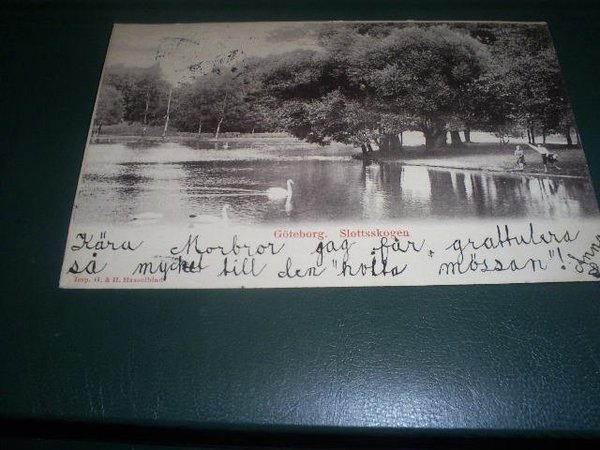 Göteborg. Slottsskogen
Kära Morbror jag får grattulera
så mycket till den "hvita mössan"!
Anna
Imp. G. & H. Hasselblad